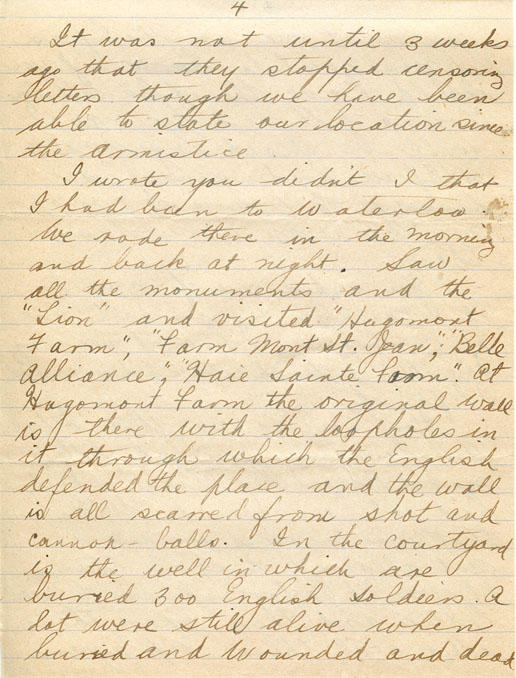 4
It was not until 3 weeks
ago that they stopped censoring
letters though we have been
able to state our location since
the armistice
I wrote you didn't I that
I had been to Waterloo.
We rode there in the morning
and back at night. Saw
all the monuments and the
"Lion" and visited "Hugomont
Farm", "Farm Mont St. Jean", "Belle
Alliance", "Haie Sainte Farm". At
Hugomont Farm the original wall
is there with the loopholes in
it through which the English
defended the place and the wall
is all scarred from shot and
cannon-balls. In the courtyard
is the well in which are
buried 300 English soldiers. A
lot were still alive when
buried and wounded and dead